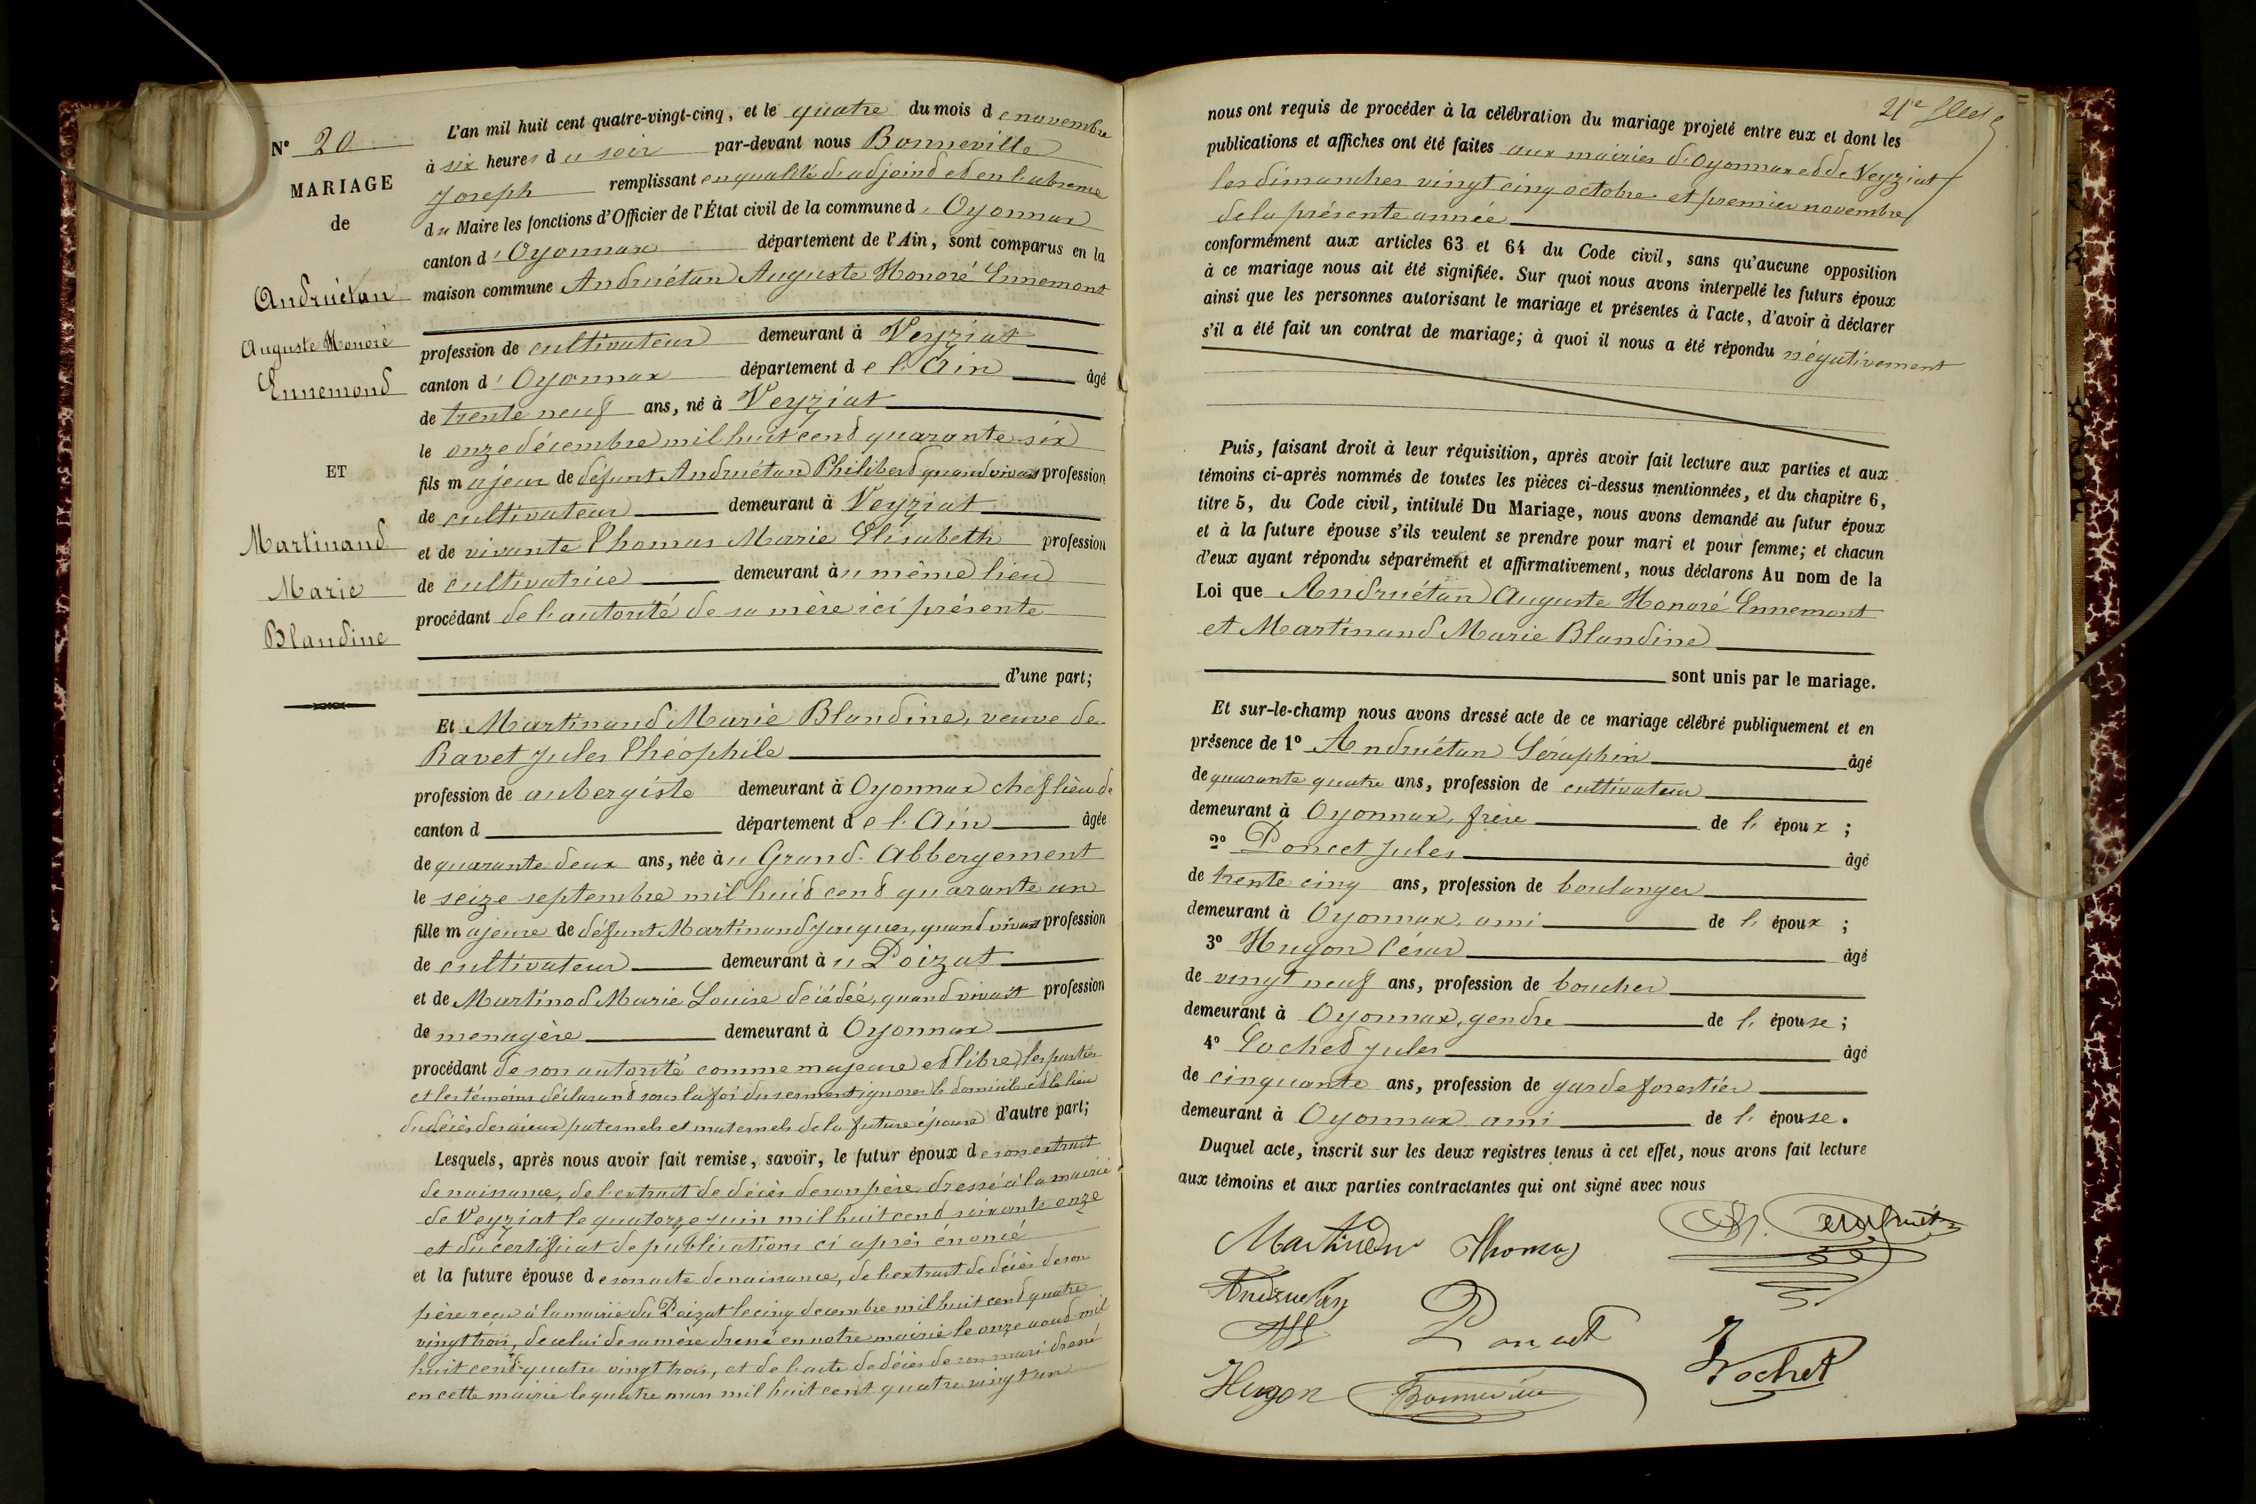 N° 20
MARIAGE
de
Andruétan
Auguste Honoré
Ennemond
ET
Martinand
Marie
Blandine
L'an mil huit cent quatre-vingt-cinq, et le quatre du mois de novembre
à six heures du soir par-devant nous Bonneville
Joseph remplissant en qualité d'adjoint et en l'absence
du Maire les fonctions d'Officier de l'État civil de la commune d'Oyonnax
canton d'Oyonnax département de l'Ain, sont comparus en la
maison commune Andruétan Auguste Honoré Ennemont
profession de cultivateur demeurant à Veyziat
canton d'Oyonnax département de l'Ain âgé
de trente neuf ans, né à Veyziat
le onze décembre mil huit cent quarante six
fils majeur de défunt Andruétan Philibert quand vivait profession
de cultivateur demeurant à Veyziat
et de vivante Thomas Marie Elisabeth profession
de cultivatrice demeurant au même lieu
procédant de l'autorité de sa mère ici présente
d'une part;
Et Martinand Marie Blandine, veuve de
Ravet Jules Théophile
profession de aubergiste demeurant à Oyonnax chef lieu de
canton d département de l'Ain âgée
de quarante deux ans, née au Grand-Abbergement
le seize septembre mil huit cent quarante un
fille majeure de défunt Martinand Jacques, quand vivait profession
de cultivateur demeurant au Poizat
et de Martinod Marie Louise décédée, quand vivait profession
de menagère demeurant à Oyonnax
procédant de son autorité comme majeure et libre, les parties
et les témoins déclarant sous la foi du serment ignorer le domicile et le lieu
du décès des aïeux paternels et maternels de la future épouse d'autre part;
Lesquels, après nous avoir fait remise, savoir, le futur époux de son extrait
de naissance, de l'extrait de décès de son père dressé à la mairie
de Veyziat le quatorze juin mil huit cent soixante onze
et du certificat de publications ci après énoncé
et la future épouse de son acte de naissance, de l'extrait de décès de son
père reçu à la mairie du Poizat le cinq decembre mil huit cent quatre
vingt trois, de celui de sa mère dressé en notre mairie le onze aout mil
huit cent quatre vingt trois, et de l'acte de décès de son mari dressé
en cette mairie le quatre mars mil huit cent quatre vingt un
nous ont requis de procéder à la célébration du mariage projeté entre eux et dont les
publications et affiches ont été faites aux mairies d'Oyonnax et de Veyziat
les dimanches vingt cinq octobre et premier novembre
de la présente année
conformément aux articles 63 et 64 du Code civil, sans qu'aucune opposition
à ce mariage nous ait été signifiée. Sur quoi nous avons interpellé les futurs époux
ainsi que les personnes autorisant le mariage et présentes à l'acte, d'avoir à déclarer
s'il a été fait un contrat de mariage; à quoi il nous a été répondu négativement
Puis, faisant droit à leur réquisition, après avoir fait lecture aux parties et aux
témoins ci-après nommés de toutes les pièces ci-dessus mentionnées, et du chapitre 6,
titre 5, du Code civil, intitulé Du Mariage, nous avons demandé au futur époux
et à la future épouse s'ils veulent se prendre pour mari et pour femme; et chacun
d'eux ayant répondu séparément et affirmativement, nous déclarons Au nom de la
Loi que Andruétan Auguste Honoré Ennemont
et Martinand Marie Blandine
sont unis par le mariage.
Et sur-le-champ nous avons dressé acte de ce mariage célébré publiquement et en
présence de 1° Andruétan Séraphin âgé
de quarante quatre ans, profession de cultivateur
demeurant à Oyonnax, frère de l'époux;
2° Poncet Jules âgé
de trente cinq ans, profession de boulanger
demeurant à Oyonnax, ami de l'époux;
3° Hugon César âgé
de vingt neuf ans, profession de boucher
demeurant à Oyonnax, gendre de l'épouse;
4° Cochet Jules âgé
de cinquante ans, profession de garde forestier
demeurant à Oyonnax ami de l'épouse.
Duquel acte, inscrit sur les deux registres tenus à cet effet, nous avons fait lecture
aux témoins et aux parties contractantes qui ont signé avec nous
Thomas
Poncet
Hugon Bonneville